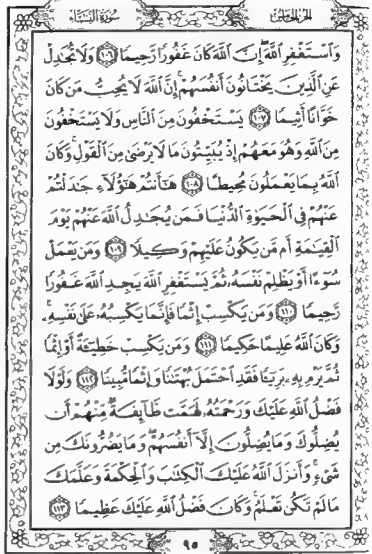 الجزء الخامس
سورة النساء
وَٱسْتَغْفِرِ ٱللَّهَ إِنَّ ٱللَّهَ كَانَ غَفُورًا رَّحِيمًا ١٠٦ وَلَا تُجَٰدِلْ
عَنِ ٱلَّذِينَ يَخْتَانُونَ أَنفُسَهُمْ إِنَّ ٱللَّهَ لَا يُحِبُّ مَن كَانَ
خَوَّانًا أَثِيمًا ١٠٧ يَسْتَخْفُونَ مِنَ ٱلنَّاسِ وَلَا يَسْتَخْفُونَ
مِنَ ٱللَّهِ وَهُوَ مَعَهُمْ إِذْ يُبَيِّتُونَ مَا لَا يَرْضَىٰ مِنَ ٱلْقَوْلِ وَكَانَ
ٱللَّهُ بِمَا يَعْمَلُونَ مُحِيطًا ١٠٨ هَٰٓأَنتُمْ هَٰٓؤُلَآءِ جَٰدَلْتُمْ
عَنْهُمْ فِى ٱلْحَيَوٰةِ ٱلدُّنْيَا فَمَن يُجَٰدِلُ ٱللَّهَ عَنْهُمْ يَوْمَ
ٱلْقِيَٰمَةِ أَم مَّن يَكُونُ عَلَيْهِمْ وَكِيلًا ١٠٩ وَمَن يَعْمَلْ
سُوٓءًا أَوْ يَظْلِمْ نَفْسَهُۥ ثُمَّ يَسْتَغْفِرِ ٱللَّهَ يَجِدِ ٱللَّهَ غَفُورًا
رَّحِيمًا ١١٠ وَمَن يَكْسِبْ إِثْمًا فَإِنَّمَا يَكْسِبُهُۥ عَلَىٰ نَفْسِهِۦ
وَكَانَ ٱللَّهُ عَلِيمًا حَكِيمًا ١١١ وَمَن يَكْسِبْ خَطِيٓـَٔةً أَوْ إِثْمًا
ثُمَّ يَرْمِ بِهِۦ بَرِيٓـًٔا فَقَدِ ٱحْتَمَلَ بُهْتَٰنًا وَإِثْمًا مُّبِينًا ١١٢ وَلَوْلَا
فَضْلُ ٱللَّهِ عَلَيْكَ وَرَحْمَتُهُۥ لَهَمَّت طَّآئِفَةٌ مِّنْهُمْ أَن
يُضِلُّوكَ وَمَا يُضِلُّونَ إِلَّآ أَنفُسَهُمْ وَمَا يَضُرُّونَكَ مِن
شَىْءٍ وَأَنزَلَ ٱللَّهُ عَلَيْكَ ٱلْكِتَٰبَ وَٱلْحِكْمَةَ وَعَلَّمَكَ
مَا لَمْ تَكُن تَعْلَمُ وَكَانَ فَضْلُ ٱللَّهِ عَلَيْكَ عَظِيمًا ١١٣
٩٥